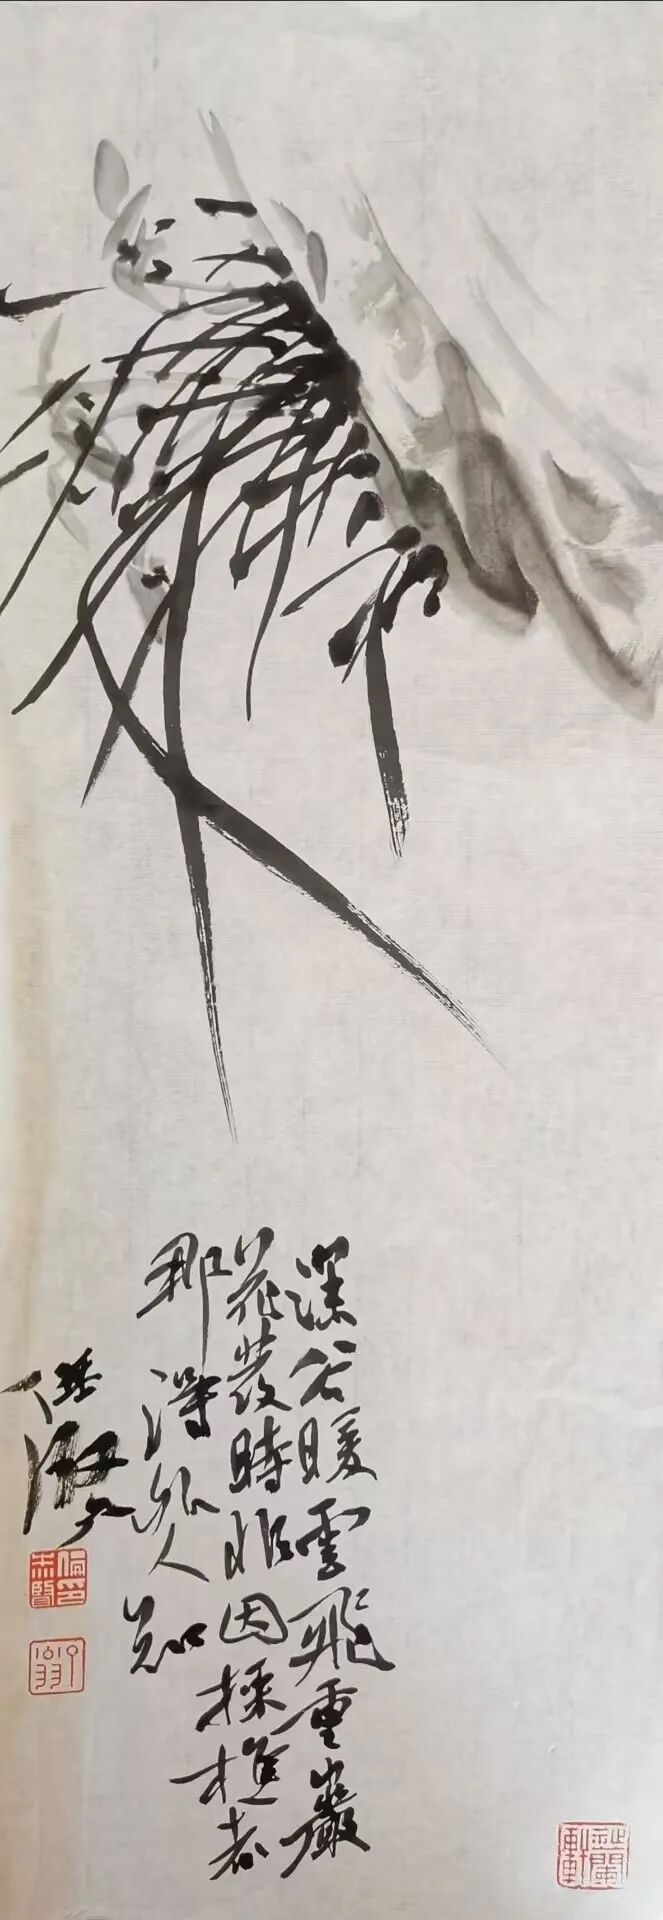 深谷暖雲飛重巖
花發時非因採樵者
那得外人知